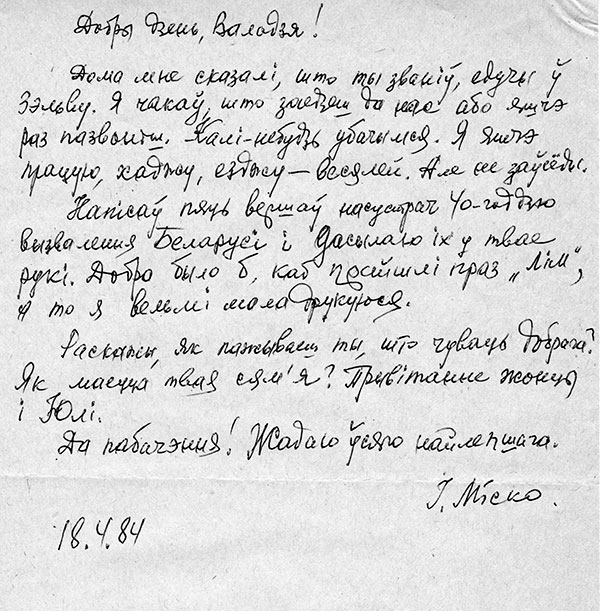 Добры дзень, Валодзя!
Дома мне сказалі, што ты званіў, едучы ў
Зэльву. Я чакаў, што заедзеш да нас або яшчэ
раз пазвоніш. Калі-небудзь убачымся. Я яшчэ
працую, хаджу, езджу — весялей. Але не заўсёды.
Напісаў пяць вершаў насустрач 40-годдзю
вызвалення Беларусі і дасылаю іх у твае
рукі. Добра было б, каб прайшлі праз „Лім",
а то я вельмі мала друкуюся.
Раскажы, як пажываеш ты, што чуваць добрага?
Як маецца твая сям'я? Прывітанне жонцы
і Юлі.
Да пабачэння! Жадаю ўсяго найлепшага.
І. Міско.
18.4.84